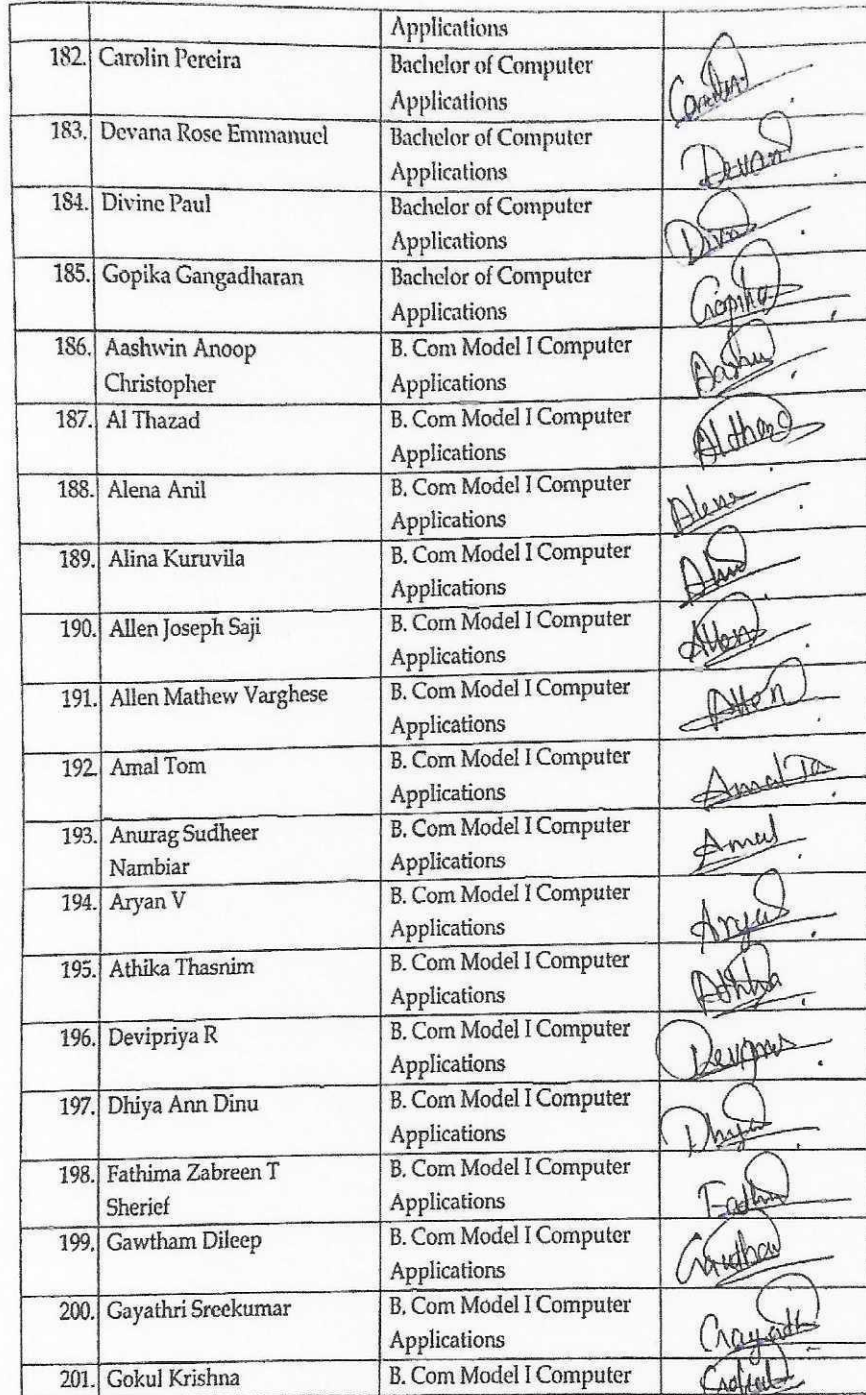 Applications
182. Carolin Pereira Bachelor of Computer
Applications
183. Devana Rose Emmanuel Bachelor of Computer
Applications Devan
184. Divine Paul Bachelor of Computer
Applications
185. Gopika Gangadharan Bachelor of Computer
Applications Gopika
186. Aashwin Anoop B. Com Model I Computer
Christopher Applications
187. Al Thazad B. Com Model I Computer
Applications
188. Alena Anil B. Com Model I Computer
Applications Alena
189. Alina Kuruvila B. Com Model I Computer
Applications
190. Allen Joseph Saji B. Com Model I Computer
Applications Allen
191. Allen Mathew Varghese B. Com Model I Computer
Applications Allen
192. Amal Tom B. Com Model I Computer
Applications Amal To
193. Anurag Sudheer B. Com Model I Computer
Nambiar Applications Amal
194. Aryan V B. Com Model I Computer
Applications
195. Athika Thasnim B. Com Model I Computer
Applications
196. Devipriya R B. Com Model I Computer
Applications
197. Dhiya Ann Dinu B. Com Model I Computer
Applications Dhiya
198. Fathima Zabreen T B. Com Model I Computer
Sherief Applications
199. Gawtham Dileep B. Com Model I Computer
Applications
200. Gayathri Sreekumar B. Com Model I Computer
Applications
201. Gokul Krishna B. Com Model I Computer